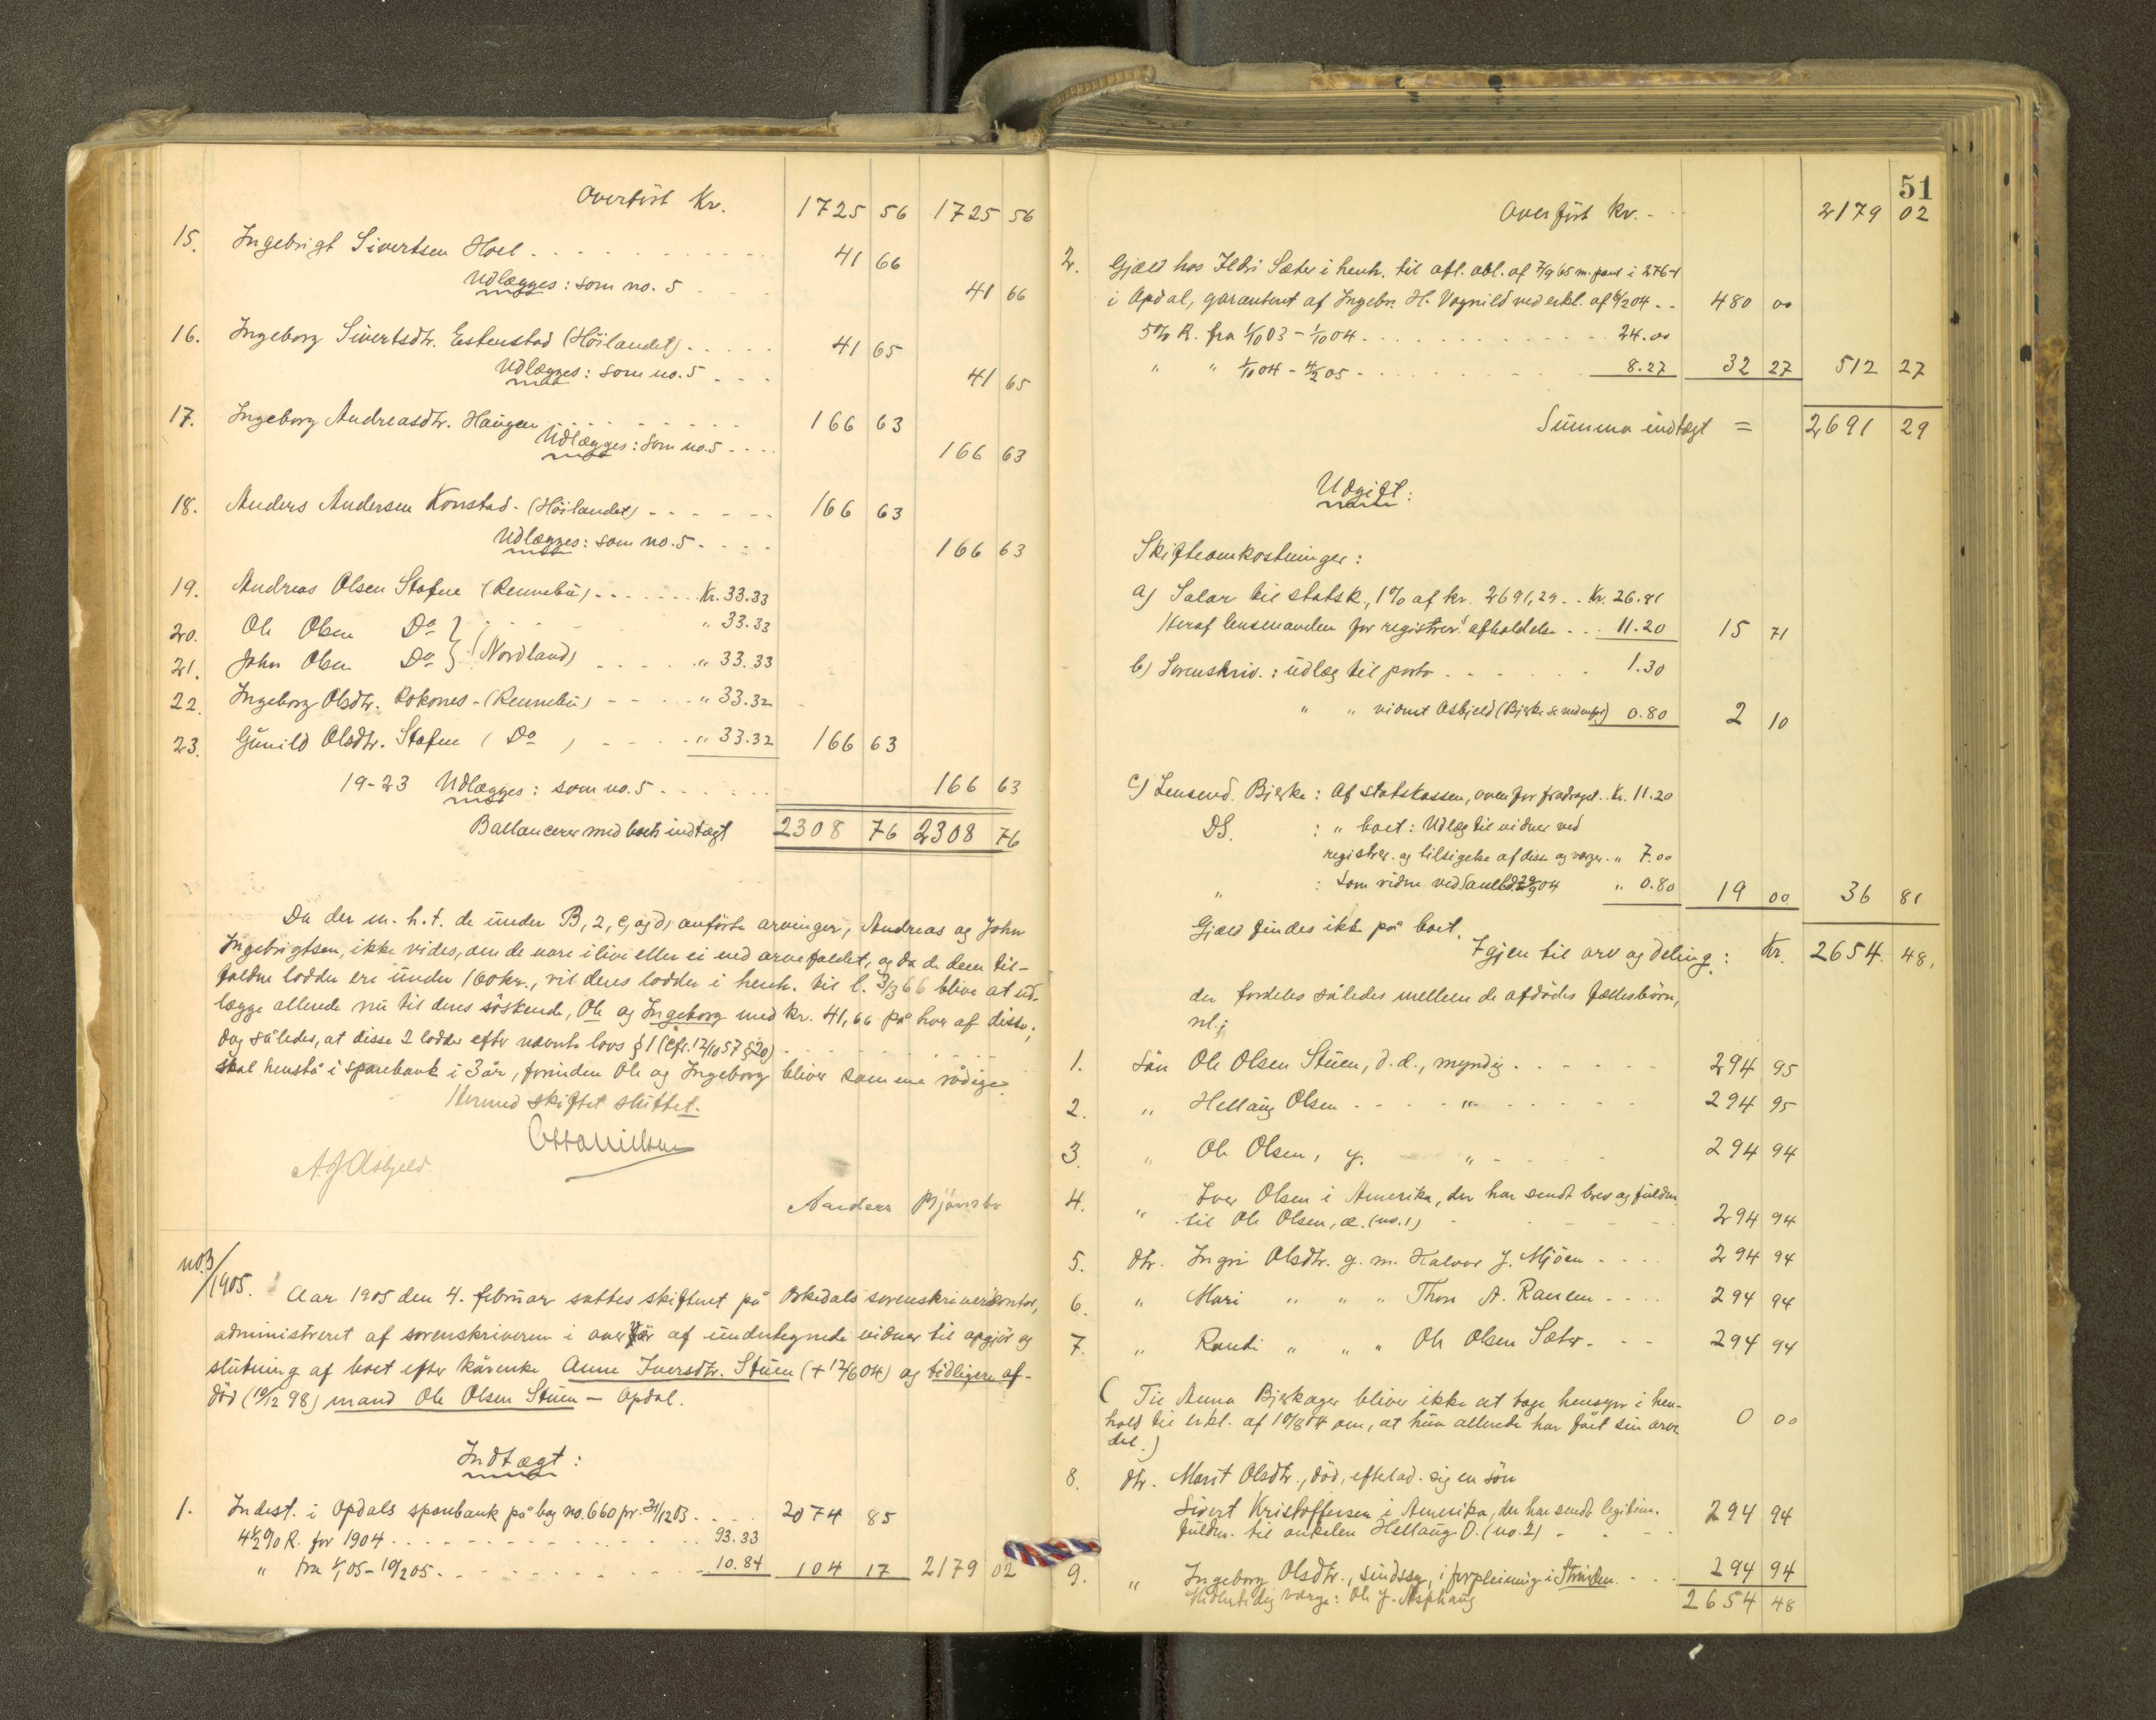 Overført Kr. 1725 56 1725 56
15. Ingebrigt Sivertsen Hoel 41 66
Udlægges: som no. 5 41 66
16. Ingeborg Sivertsdtr. Estenstad (Höilandet) 41 65
Udlægges: som no. 5 41 65
17. Ingeborg Andreasdtr. Haugen 166 63
Udlægges: som no. 5 166 63
18. Anders Andersen Konstad - (Höilandet) 166 63
Udlægges: som no. 5 166 63
19. Andreas Olsen Stafne (Rennebu) Kr. 33.33
20. Ole Olsen Do } " 33.33
21. John Olsen Do } (Nordland) " 33.33
22. Ingeborg Olsdtr. Rokones - (Rennebu) " 33.32
23. Gunild Olsdtr. Stafne ( Do ) " 33.32 166 63
19-23 Udlægges: som no. 5 166 63
Ballancerer med boets indtægt 2308 76 2308 76
Da der m. h. t. de under B, 2, c, og d, anførte arvinger, Andreas og John
Ingebrigtsen, ikke vides, om de vare i live eller ei ved arvefaldet, og da de dem til-
faldne lodder ere under 100 kr., vil deres lodder i henh. til l. 3/3 66 blive at ud-
lægge allerede nu til deres söskende, Ole og Ingeborg med kr. 41,66 på hver af disse;
dog således, at disse 2 lodder efter nævnte lovs § 1 (cfr. 12/10 57 § 20)
skal henstå i sparebank i 3 år, forinden Ole og Ingeborg bliver samme rådige.
Hermed skiftet sluttet.
Otto Nielsen
A. J. Asbjeld
Anders Bjönsbo
no. 3/1905. Aar 1905 den 4. februar sattes skifteret på Orkedals sorenskriverkontor,
administreret af sorenskriveren i overvær af undertegnede vidner til opgjör og
slutning af boet efter kårenke Anne Iversdtr. Stuen (+ 12/6 04) og tidligere af-
död (19/12 98) mand Ole Olsen Stuen - Opdal.
Indtægt:
1. Indest. i Opdals sparebank på bog no. 660 pr. 31/12 03 2074 85
4 1/2 % R. for 1904 93.33
" fra 1/1 05 - 10/2 05 10.84 104 17 2179 02
51
Overfört Kr. 2179 02
2. Gjæld hos Ildri Sæter i henh. til afl. obl. af 7/9 65 m. pant i 276-1
i Opdal, garanteret af Ingebr. H. Vognild ved erkl. af 6/2 04 480 00
5 % R. fra 1/10 03 - 1/10 04 24.00
" " 1/10 04 - 4/2 05 8.27 32 27 512 27
Summa indtægt = 2691 29
Udgift:
Skifteomkostninger:
a) Salar til statsk., 1 % af kr. 2691,29 Kr. 26.91
Heraf lensmanden for registrer.s afholdelse 11.20 15 71
b) Sorenskriv.: udlæg til porto 1.30
" " vidnet Asbjeld (Bjerke se nedenfor) 0.80 2 10
c) Lensmd. Bjerke: Af statskassen, ovenfor fradraget Kr. 11.20
DS. : " boet: Udlæg til vidner ved
registrer. og tilsigelse af disse og værger " 7.00
" : som vidne ved saml. 29/9 04 " 0.80 19 00 36 81
Gjæld findes ikke på boet.
Igjen til arv og deling: Kr. 2654. 48,
der fordeles således mellem de afdödes fællesbörn,
nl.:
1. Sön Ole Olsen Stuen, d. æ., myndig 294 95
2. " Hellaug Olsen " 294 95
3. " Ole Olsen, y. " 294 94
4. " Iver Olsen i Amerika, der har sendt brev og fuldm.
til Ole Olsen, æ. (no. 1) 294 94
5. Dtr. Ingri Olsdtr. g. m. Halvor J. Mjöen 294 94
6. " Mari " " " Thore A. Rauen 294 94
7. " Randi " " " Ole Olsen Sæter 294 94
( Til Anna Bjerkager bliver ikke at tage hensyn i hen-
hold til erkl. af 10/8 04 om, at hun allerede har fået sin arve
del.) 0 00
8. Dtr. Marit Olsdtr., död, efterlad. sig en sön
Sivert Kristoffersen i Amerika, der har sendt legitim.
fuldm. til onkelen Hellaug O. (no. 2) 294 94
9. " Ingeborg Olsdtr., sindssyg, i forpleining i Strinden 294 94
Midlertidig værge: Ole J. Aisphaug 2654 48